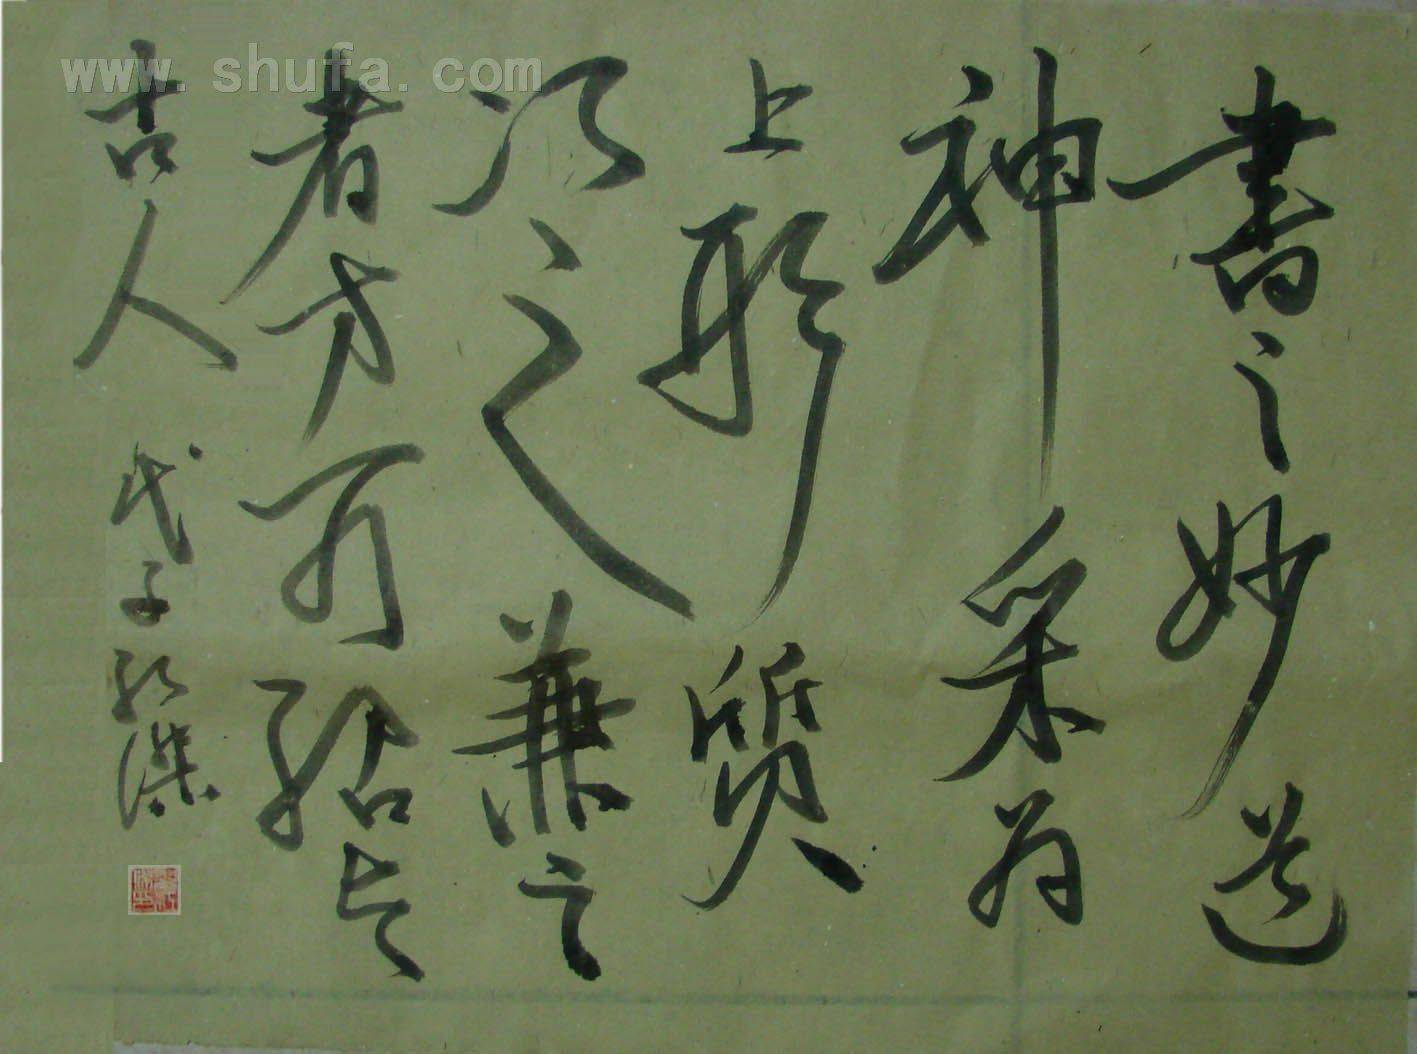 www.shufa.com
書之妙道
神采为
上形質
次之兼之
者方可紹於
古人
戊子